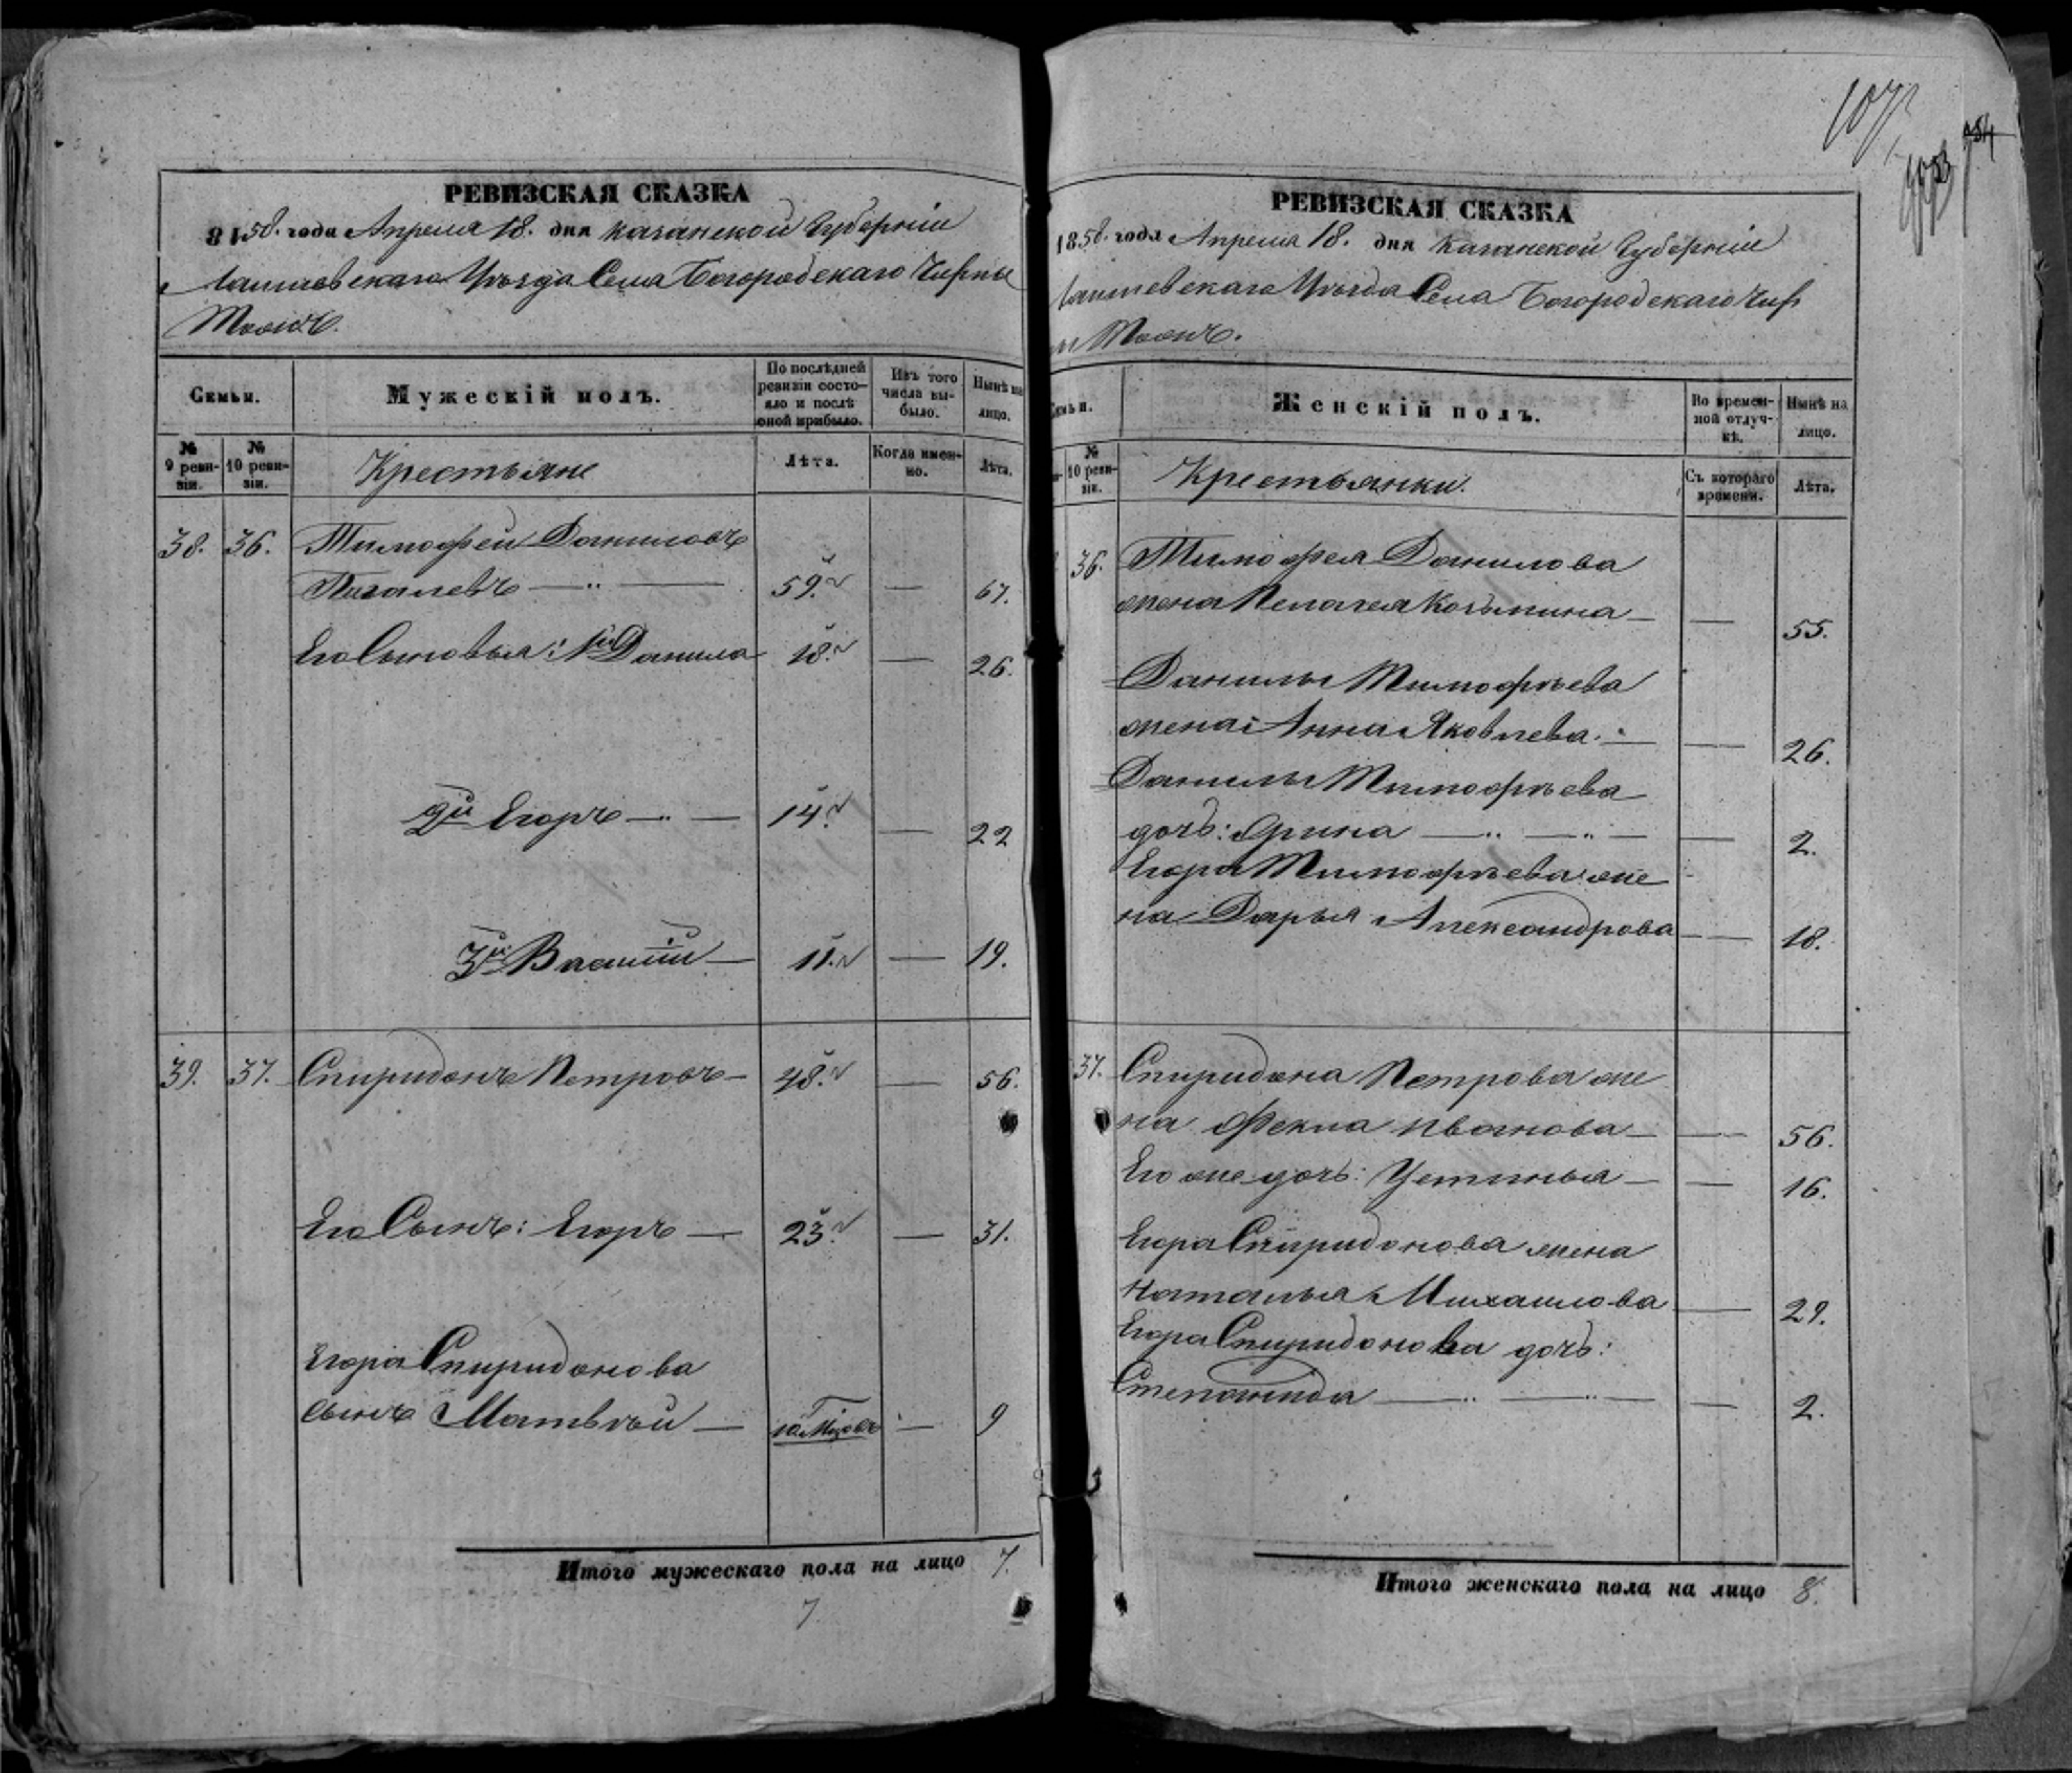 РЕВИЗСКАЯ СКАЗКА
1858. года Апреля 18. дня Казанской Губерніи
Лаишевскаго Уѣзда Села Богородскаго Чирпы
Тожъ.
Семьи.
Мужескій полъ.
По послѣдней ревизіи состояло и послѣ оной прибыло.
Изъ того числа выбыло.
Нынѣ на лицо.
№ 9 ревизіи.
№ 10 ревизіи.
Крестьяне
Лѣта.
Когда именно.
Лѣта.
38. 36. Тимофей Даниловъ
59. — 67.
Его Сыновья: 1й Данила 18. — 26.
2й Егоръ — 14. — 22
3й Василій — 11. — 19.
39. 37. Спиридонъ Петровъ — 48. — 56.
Его Сынъ: Егоръ — 23. — 31.
Егора Спиридонова
Сынъ Матвѣй — 10. Мцовъ — 9
Итого мужескаго пола на лицо 7.
7
107
754
РЕВИЗСКАЯ СКАЗКА
1858. года Апреля 18. дня Казанской Губерніи
Лаишевскаго Уѣзда Села Богородскаго Чир
пы Тожъ.
Семьи.
Женскій полъ.
Во временной отлучкѣ.
Нынѣ на лицо.
№ 10 ревизіи.
Крестьянки.
Съ котораго времени.
Лѣта.
36. Тимофея Данилова
жена Пелагея Козьмина — — 55.
Данилы Тимофѣева
жена: Анна Яковлева. — — 26.
Данилы Тимофѣева
дочь: Арина — — — 2.
Егора Тимофѣева же
на Дарья Александрова — — 18.
37. Спиридона Петрова же
на Фекла Иванова — — 56.
Его же дочь: Устинья — — 16.
Егора Спиридонова жена
Наталья Михайлова — 29.
Егора Спиридонова дочь:
Степанида — — — 2.
Итого женскаго пола на лицо 8.